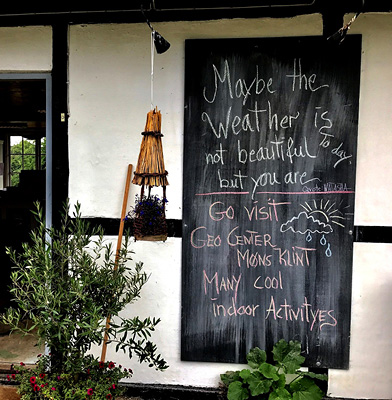 Maybe the
Weather is
not beautiful To day
but you are
Go visit
Geo Center
Møns Klint
Many cool
indoor Activityes